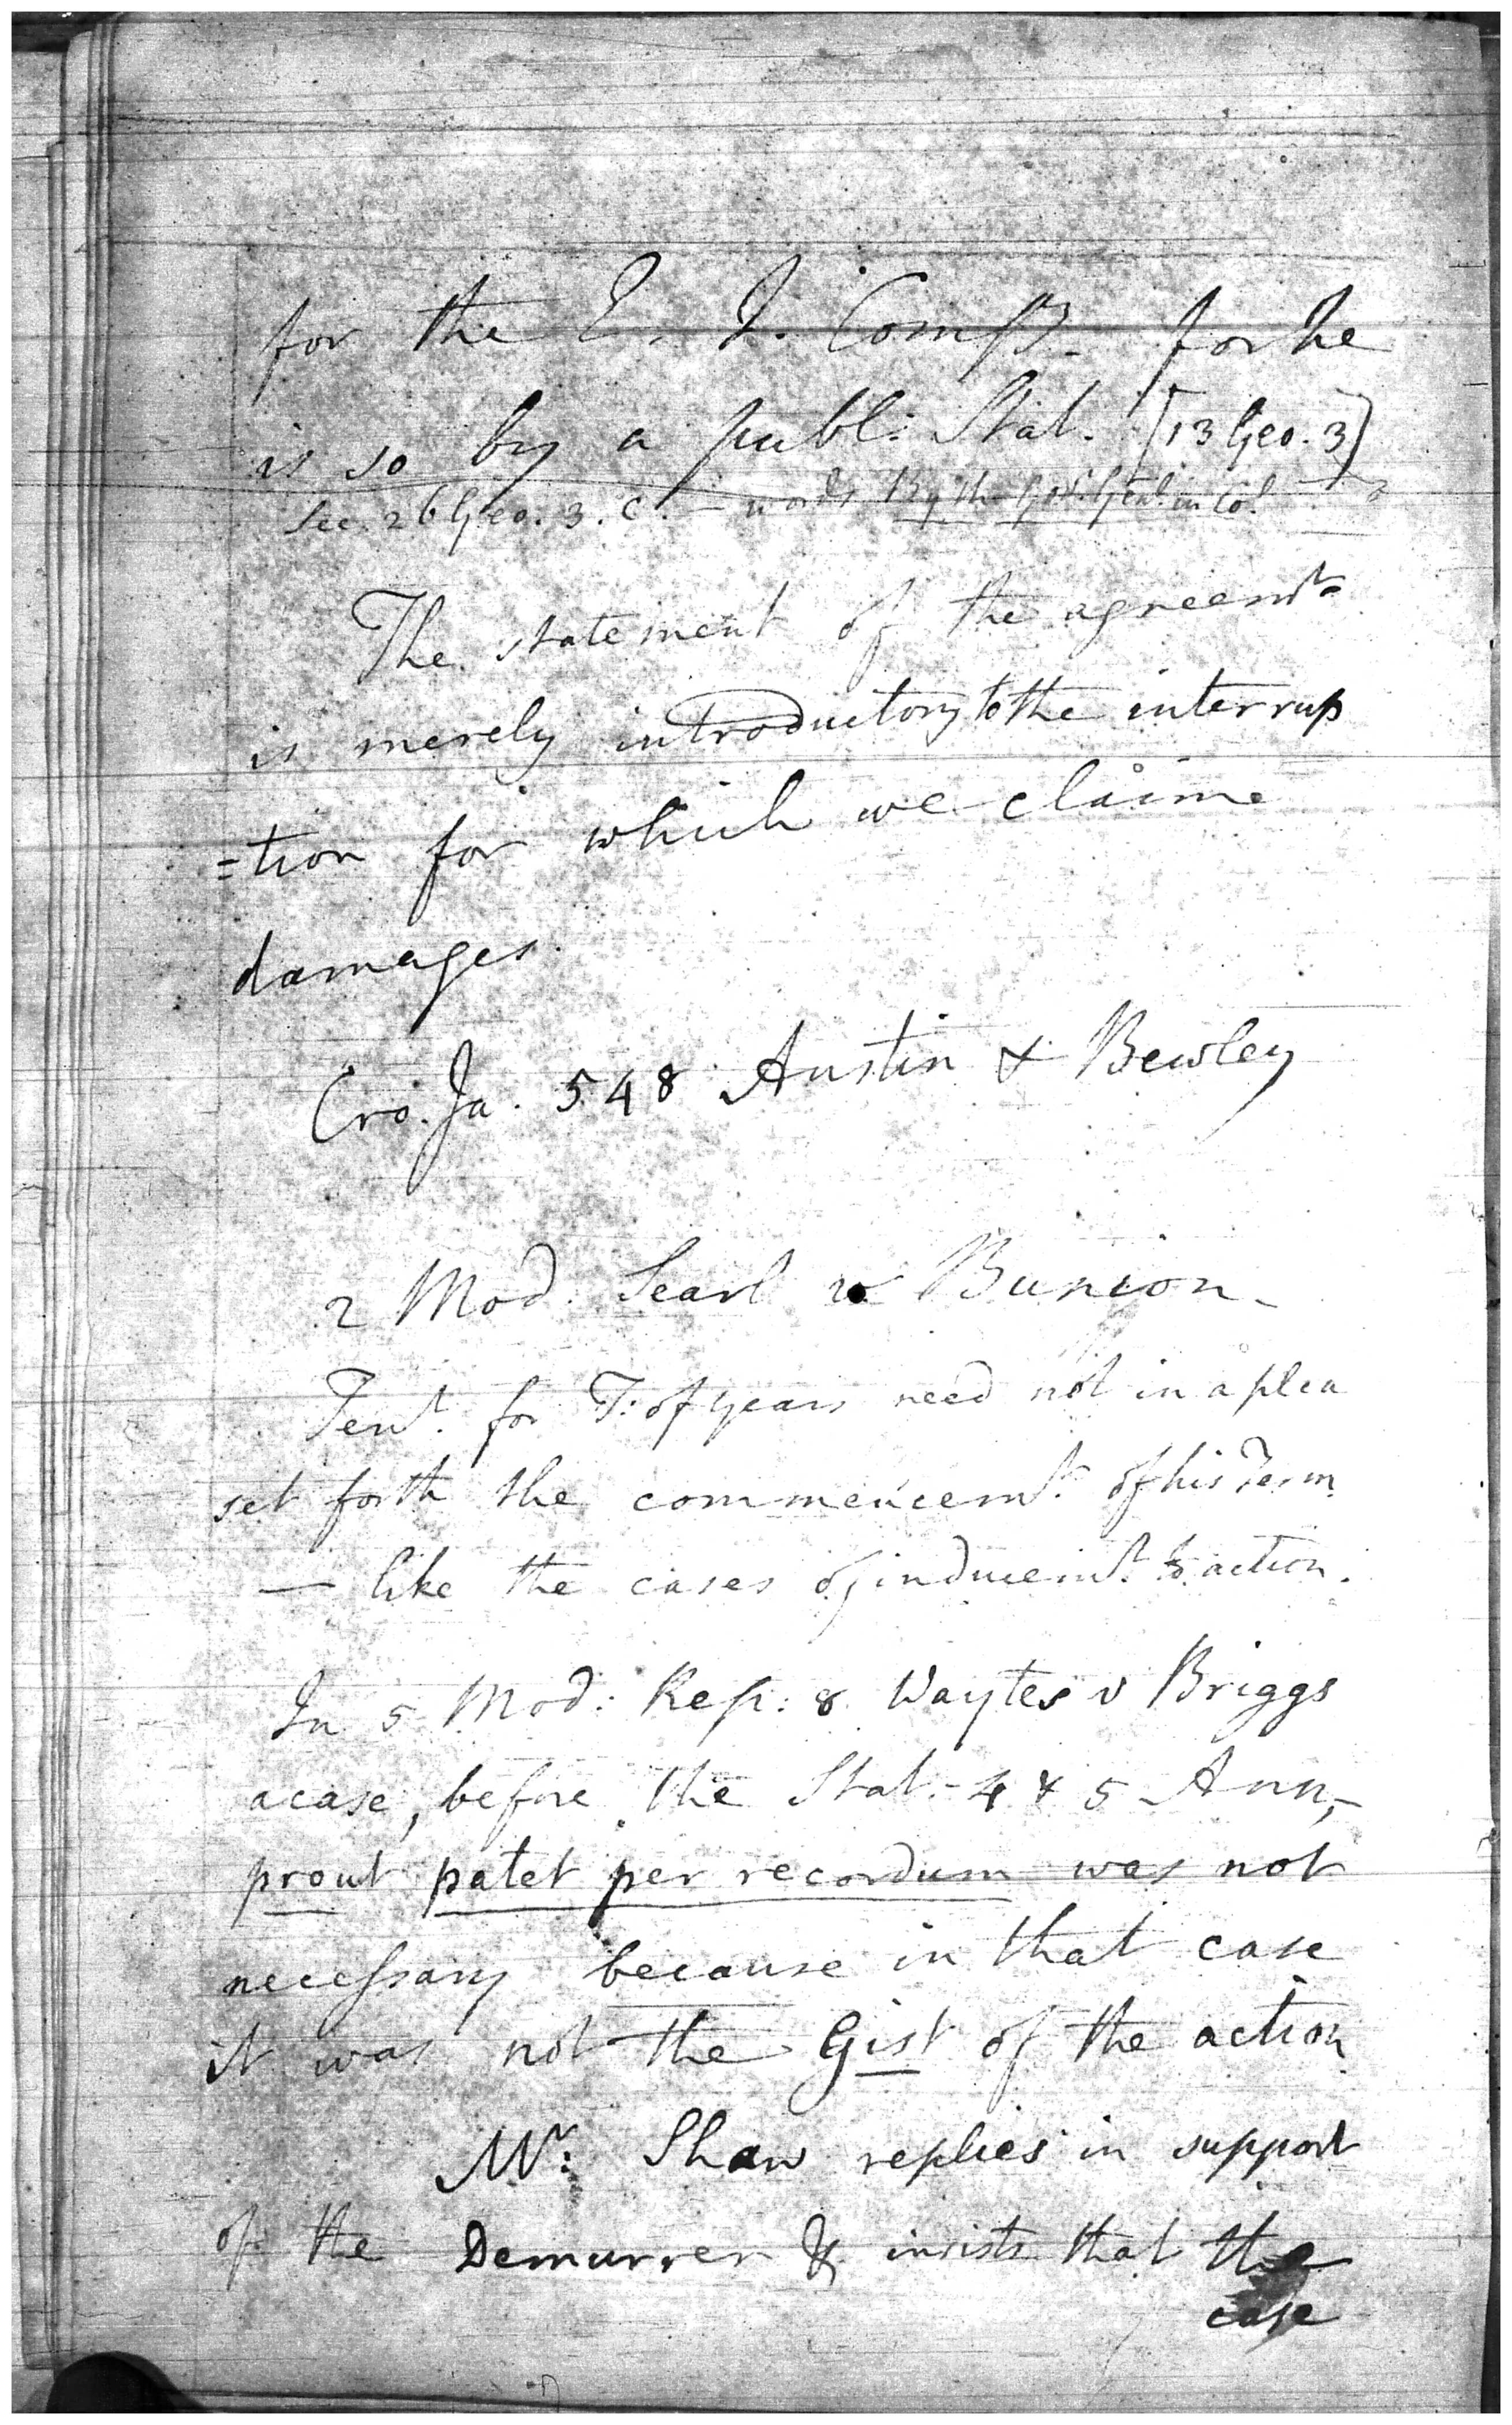 for the E. I. Compy. for he
is so by a publ: Stat. [13 Geo. 3]
See. 26 Geo. 3. C. — words By the Govr. Genl. in Col.
The statement of the agreemt.
is merely introductory to the interrup
=tion for which we claime
damages.
Cro. Ja. 548 Austin & Bewley
2 Mod. Searl v Bunion -
Tent. for T: of years need not in a plea
set forth the commencemt. of his Term
— like the cases of inducemt. to action.
In 5 Mod: Rep: 8 Waytes v Briggs
a case, before the Stat. 4 & 5 Ann,-
prout patet per recordum was not
necessary because in that case
it was not the Gist of the action
Mr: Shaw replies in support
of the Demurrer & insists that the
case